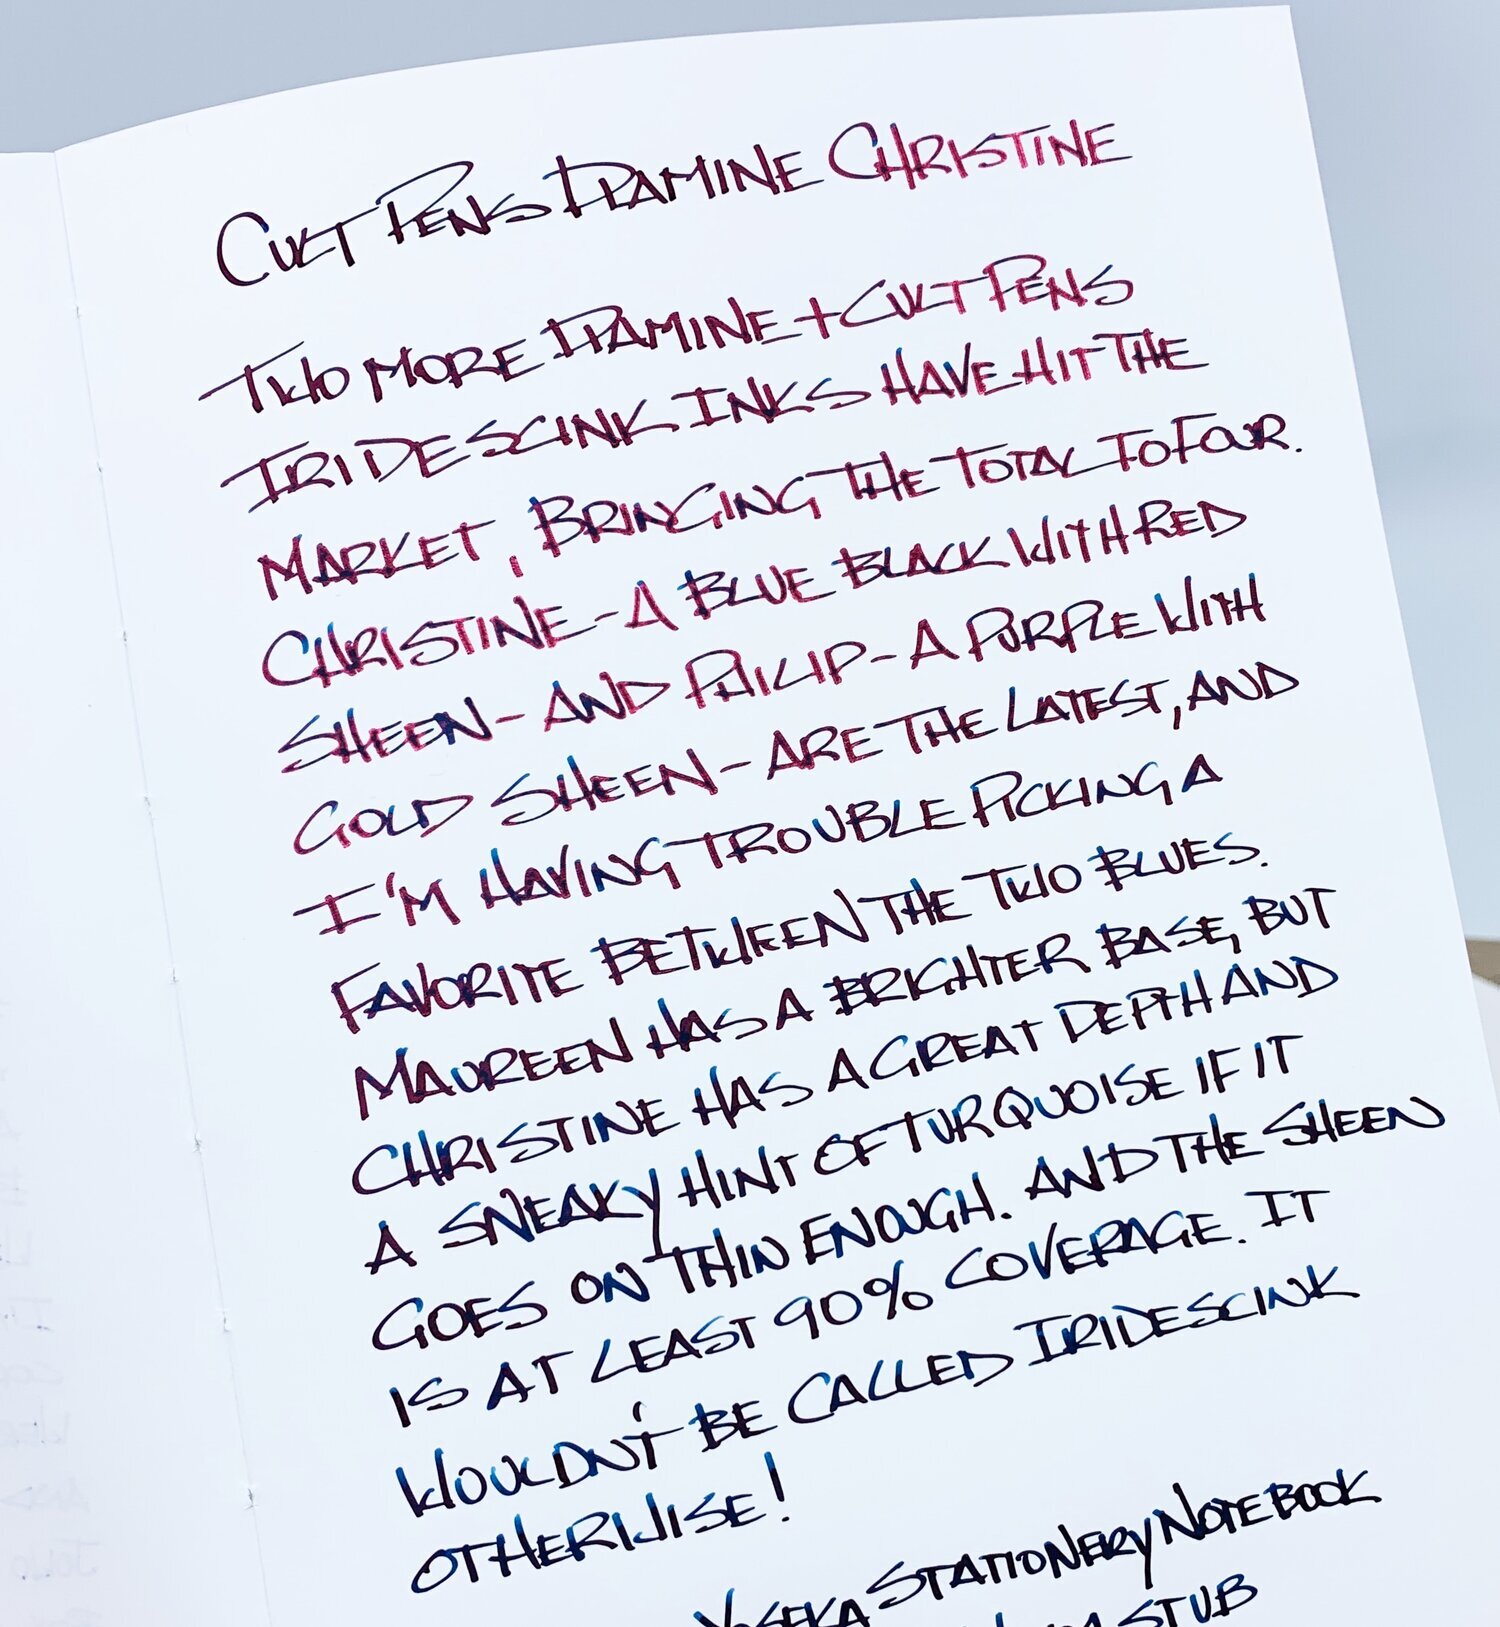 CULT PENS DIAMINE CHRISTINE
TWO MORE DIAMINE + CULT PENS
IRIDESCINK INKS HAVE HIT THE
MARKET, BRINGING THE TOTAL TO FOUR.
CHRISTINE - A BLUE BLACK WITH RED
SHEEN - AND PHILIP - A PURPLE WITH
GOLD SHEEN - ARE THE LATEST, AND
I'M HAVING TROUBLE PICKING A
FAVORITE BETWEEN THE TWO BLUES.
MAUREEN HAS A BRIGHTER BASE, BUT
CHRISTINE HAS A GREAT DEPTH AND
A SNEAKY HINT OF TURQUOISE IF IT
GOES ON THIN ENOUGH. AND THE SHEEN
IS AT LEAST 90% COVERAGE. IT
WOULDN'T BE CALLED IRIDESCINK
OTHERWISE!
YOSEKA STATIONERY NOTEBOOK
STUB